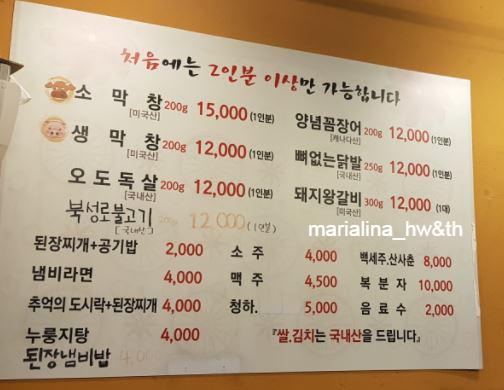 처음에는 2인분 이상만 가능합니다
소 막 창 200g 15,000 (1인분)
[미국산]
생 막 창 200g 12,000 (1인분)
[미국산]
오 도 독 살 200g 12,000 (1인분)
[국내산]
북성로불고기 200g 12,000 (1인분)
[국내산]
양념꼼장어 200g 12,000 (1인분)
[캐나다산]
뼈없는닭발 250g 12,000 (1인분)
[국내산]
돼지왕갈비 300g 12,000 (1대)
[미국산]
marialina_hw&th
된장찌개+공기밥 2,000
냄비라면 4,000
추억의 도시락+된장찌개 4,000
누룽지탕 4,000
된장냄비밥 4,000
소 주 4,000
맥 주 4,500
청하. 5,000
백세주.산사춘 8,000
복 분 자 10,000
음 료 수 2,000
『쌀.김치는 국내산을 드립니다.』